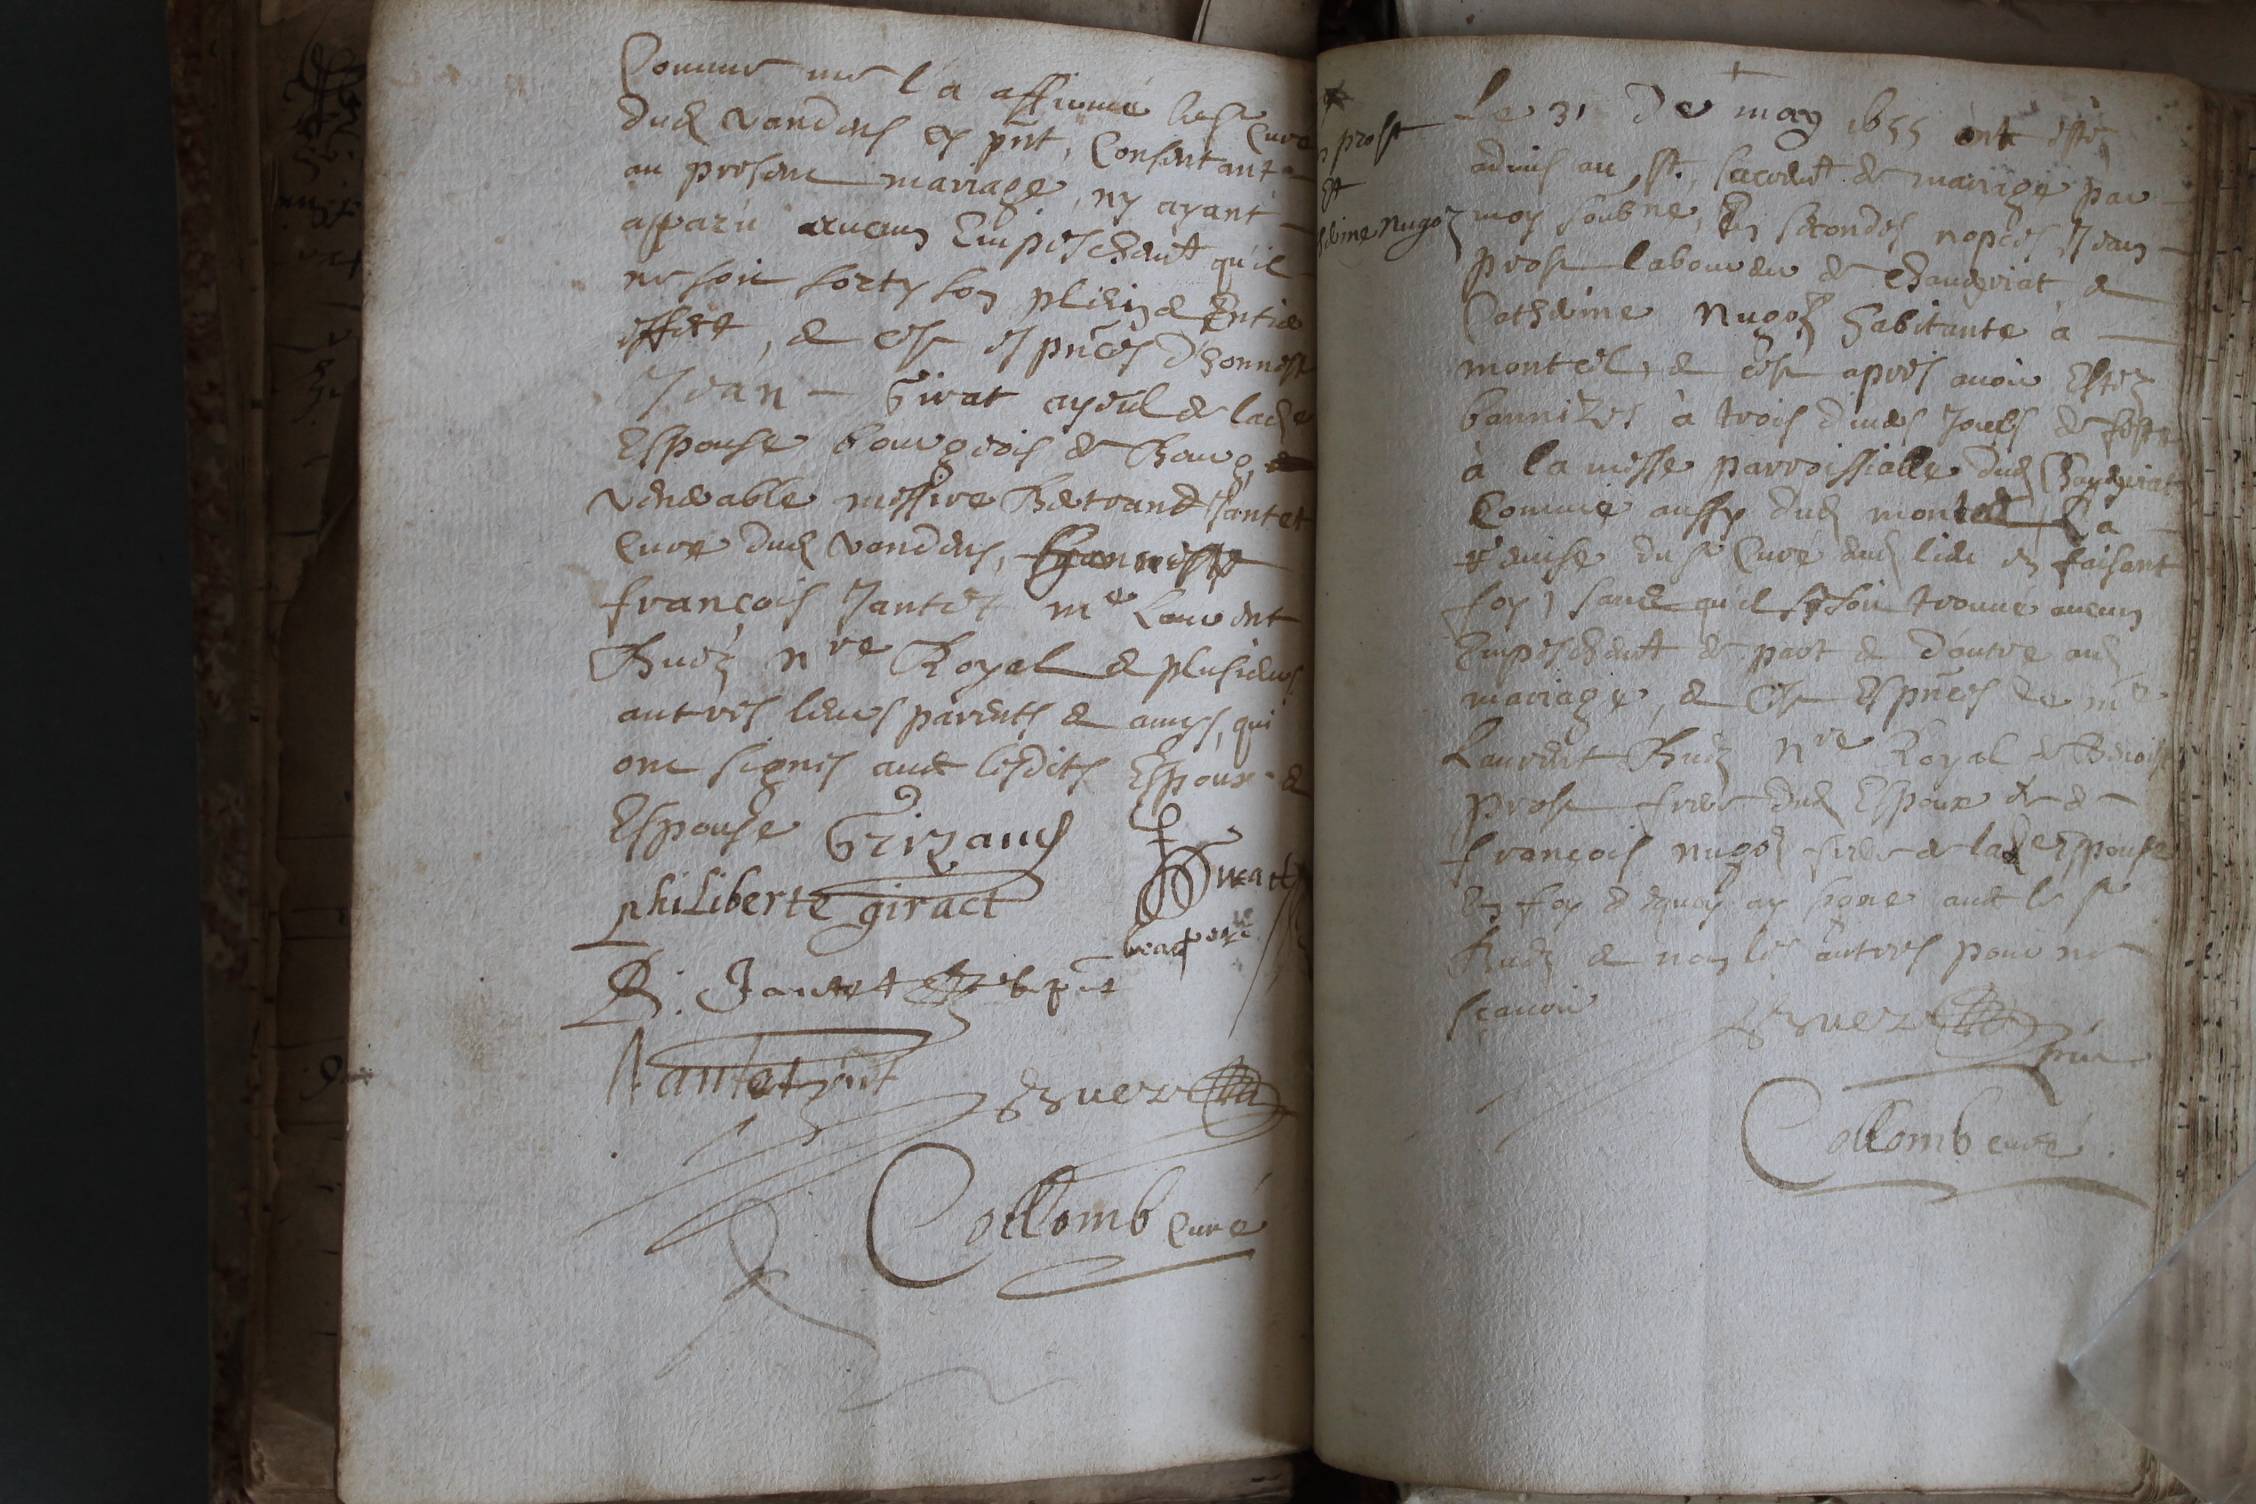 Comme me l'a affirmé
dud vandens et pnt, Consentant
au present mariage, ny ayant
apparu aucun Empeschent qu'il
ne soit sorty son plein & Entier
effect, & ce es pnces d'honneste
Jean Girat ayeul de lade
Espouse bourgeois de Bourg
venerable messire Bertrand Jantet
Curé dud vandens,
françois Jantet me Laurent
Buez nre Royal & plusieurs
autres leurs parents & amys, qui
ont signes avec lesdits Espoux &
Espouse Girzaud
philiberte giract
Giract
beaupere
B. Jantet pnt
Jantet pnt
Buez
Collomb Curé
+
Le 31 de may 1655 ont esté
prost
admis au st. sacremt de mariage par
et
moy soubne, En secondes nopces, Jean
Nugoz
prost laboureur de chaveyriat &
Catherine Nugoz habitante à
montcel, & ce apres avoir Estez
bannizes à trois divers jours de feste
à la messe parroissialle dud Chaveyriat
Comme aussy dud montcel, La
remise du sr Curé dud lieu en faisant
foy, sans qu'il se soit trouvé aucun
Empeschent de part & d'autre aud
mariage, & ce Es pnces de me
Laurent Buez Nre Royal & Benoist
prost frere dud Espoux & de
françois nugoz frere de lade Espouse
En foy dequoy ay signe avec le sr
Buez & non les autres pour ne
scavoir
Buez
pnt
Collomb curé